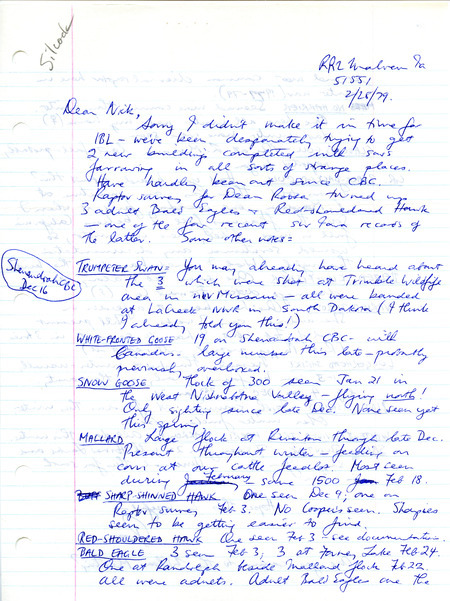 Silcock
RR2 Malvern Ia
51551
2/25/79.
Dear Nick,
Sorry I didn't make it in time for
IBL - we've been desperately trying to get
2 new buildings completed with sows
farrowing in all sorts of strange places.
Have hardly been out since CBC.
Raptor survey for Dean Roosa turned up
3 adult Bald Eagles & Red-shouldered Hawk
- one of the few recent sw Iowa records of
the latter. Some other notes:
Shenandoah CBC
Dec 16
TRUMPETER SWAN: You may already have heard about
the 3 which were shot at Trimble Wildlife
area in nw Missouri - all were banded
at LaCreek NWR in South Dakota (I think
I already told you this!)
WHITE-FRONTED GOOSE 19 on Shenandoah CBC - with
Canadas. large number this late - probably
previously overlooked.
SNOW GOOSE Flock of 300 seen Jan 21 in
the West Nishnabotna Valley - flying north!
Only sighting since late Dec. None seen yet
this spring.
MALLARD Large flock at Riverton through late Dec.
Present throughout winter - feeding on
corn at our cattle feedlot. Most seen
during February some 1500 Feb 18.
SHARP-SHINNED HAWK One seen Dec 9, one on
Raptor survey Feb 3. No Coopers seen. Sharpies
seem to be getting easier to find.
RED-SHOULDERED HAWK One seen Feb 3 - see documentation.
BALD EAGLE 3 seen Feb 3, 3 at Forney Lake Feb 24.
One at Randolph beside Mallard flock Feb 22.
All were adults. Adult Bald Eagles are the